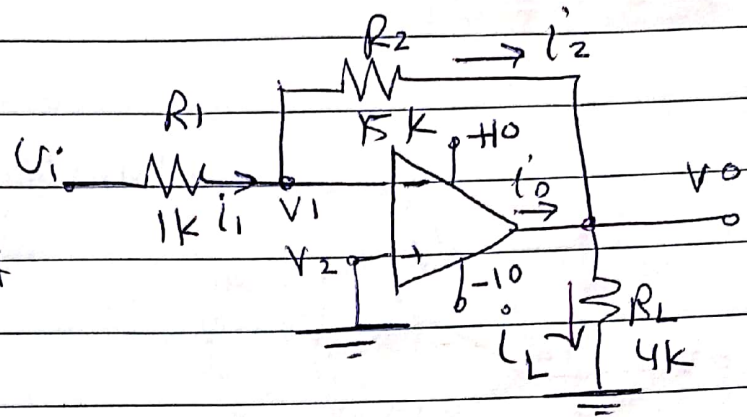 R2 i2
R1
15 K +10
Ui i0 V0
1K i1 V1
V2
-10
RL
iL 4K